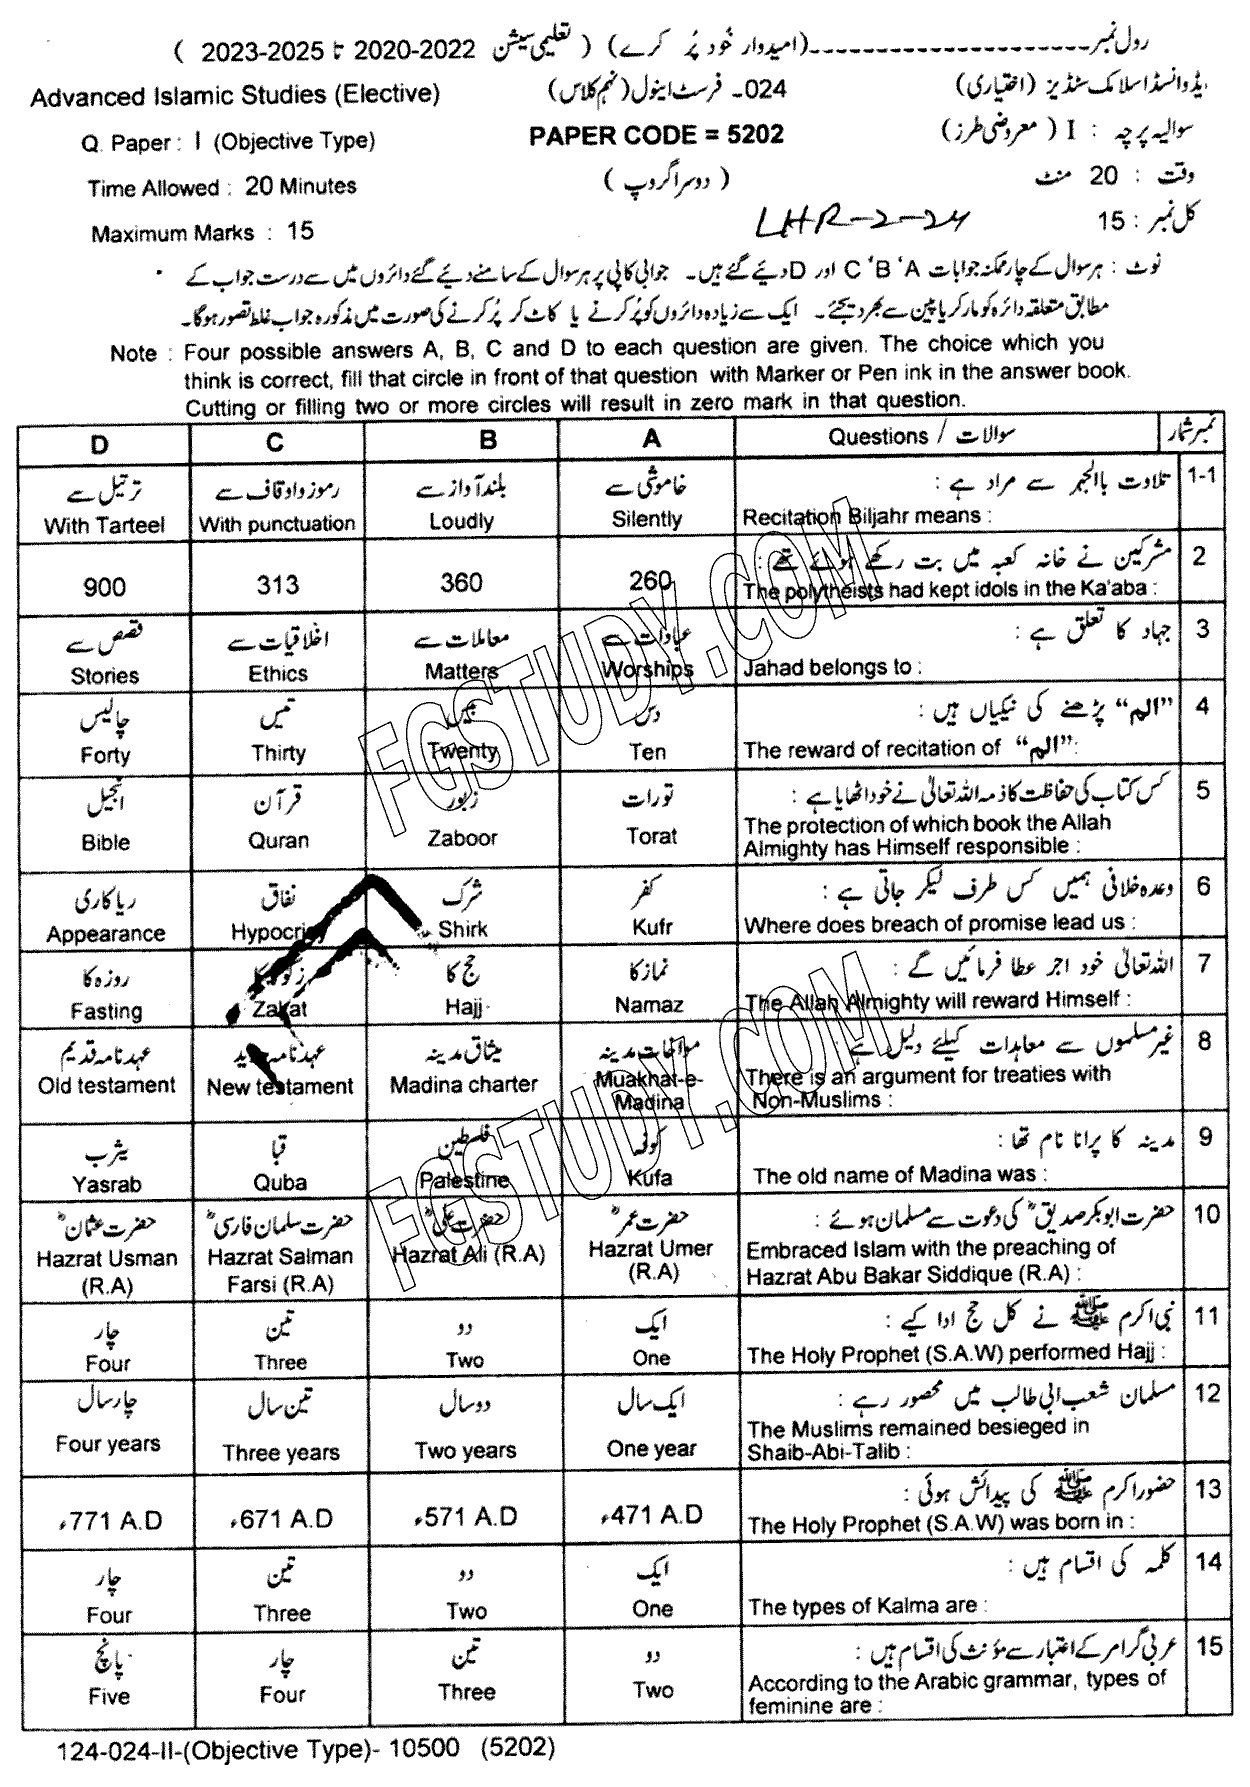 رول نمبر ــــــــــــــــــــــ (امیدوار خود پُر کرے) ( تعلیمی سیشن 2022-2020 تا 2025-2023 )
ایڈوانسڈ اسلامک سٹڈیز (اختیاری) 024۔ فرسٹ اینول (نہم کلاس) Advanced Islamic Studies (Elective)
سوالیہ پرچہ : I ( معروضی طرز) PAPER CODE = 5202 Q. Paper : I (Objective Type)
وقت : 20 منٹ ( دوسرا گروپ ) Time Allowed : 20 Minutes
کل نمبر : 15 LHR-2-24 Maximum Marks : 15
نوٹ : ہر سوال کے چار ممکنہ جوابات A ' B ' C اور D دیئے گئے ہیں۔ جوابی کاپی پر ہر سوال کے سامنے دیئے گئے دائروں میں سے درست جواب کے
مطابق متعلقہ دائرہ کو مارکر یا پین سے بھر دیجئے۔ ایک سے زیادہ دائروں کو پُر کرنے یا کاٹ کر پُر کرنے کی صورت میں مذکورہ جواب غلط تصور ہوگا۔
Note : Four possible answers A, B, C and D to each question are given. The choice which you
think is correct, fill that circle in front of that question with Marker or Pen ink in the answer book.
Cutting or filling two or more circles will result in zero mark in that question.
نمبر شمار Questions / سوالات A B C D
1-1 تلاوت بالجہر سے مراد ہے : خاموشی سے بلند آواز سے رموز و اوقاف سے ترتیل سے
Recitation Biljahr means : Silently Loudly With punctuation With Tarteel
2 مشرکین نے خانہ کعبہ میں بت رکھے ہوئے تھے :
The polytheists had kept idols in the Ka'aba : 260 360 313 900
3 جہاد کا تعلق ہے : عبادات سے معاملات سے اخلاقیات سے قصص سے
Jahad belongs to : Worships Matters Ethics Stories
4 ”الم“ پڑھنے کی نیکیاں ہیں : دس بیس تیس چالیس
The reward of recitation of ”الم“: Ten Twenty Thirty Forty
5 کس کتاب کی حفاظت کا ذمہ اللہ تعالیٰ نے خود اٹھایا ہے : تورات زبور قرآن انجیل
The protection of which book the Allah
Almighty has Himself responsible : Torat Zaboor Quran Bible
6 وعدہ خلافی ہمیں کس طرف لیکر جاتی ہے : کفر شرک نفاق ریاکاری
Where does breach of promise lead us : Kufr Shirk Hypocrisy Appearance
7 اللہ تعالیٰ خود اجر عطا فرمائیں گے : نماز کا حج کا زکوٰۃ کا روزہ کا
The Allah Almighty will reward Himself : Namaz Hajj Zakat Fasting
8 غیر مسلموں سے معاہدات کیلئے دلیل ہے : مواخات مدینہ میثاق مدینہ عہد نامہ جدید عہد نامہ قدیم
There is an argument for treaties with
Non-Muslims : Muakhat-e-Madina Madina charter New testament Old testament
9 مدینہ کا پرانا نام تھا : کوفہ فلسطین قبا یثرب
The old name of Madina was : Kufa Palestine Quba Yasrab
10 حضرت ابوبکر صدیقؓ کی دعوت سے مسلمان ہوئے : حضرت عمرؓ حضرت علیؓ حضرت سلمان فارسیؓ حضرت عثمانؓ
Embraced Islam with the preaching of
Hazrat Abu Bakar Siddique (R.A) : Hazrat Umer (R.A) Hazrat Ali (R.A) Hazrat Salman Farsi (R.A) Hazrat Usman (R.A)
11 نبی اکرم ﷺ نے کل حج ادا کیے : ایک دو تین چار
The Holy Prophet (S.A.W) performed Hajj : One Two Three Four
12 مسلمان شعب ابی طالب میں محصور رہے : ایک سال دو سال تین سال چار سال
The Muslims remained besieged in
Shaib-Abi-Talib : One year Two years Three years Four years
13 حضور اکرم ﷺ کی پیدائش ہوئی :
The Holy Prophet (S.A.W) was born in : 471 A.D ء 571 A.D ء 671 A.D ء 771 A.D ء
14 کلمہ کی اقسام ہیں : ایک دو تین چار
The types of Kalma are : One Two Three Four
15 عربی گرامر کے اعتبار سے مؤنث کی اقسام ہیں : دو تین چار پانچ
According to the Arabic grammar, types of
feminine are : Two Three Four Five
124-024-II-(Objective Type)- 10500 (5202)
FGSTUDY.COM
FGSTUDY.COM